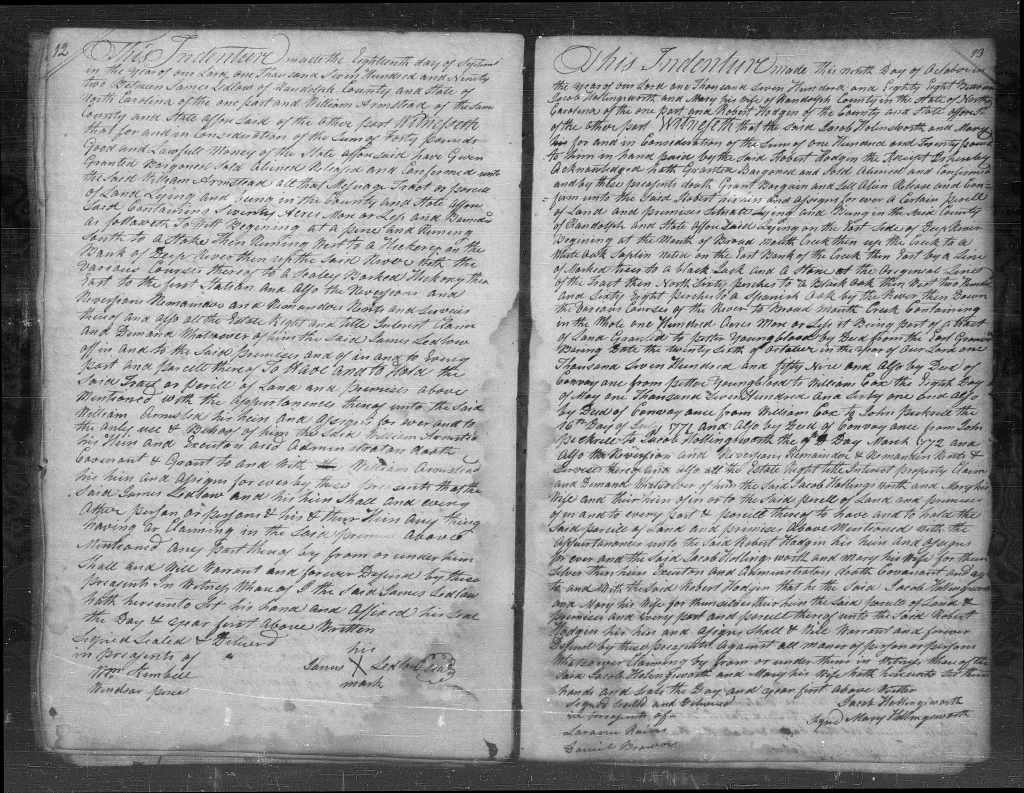 12
This Indenture made the Eighteenth day of Septem
in the year of our Lord one Thousand Seven Hundred and Ninety
two Between James Ledlow of Randolph County and State of
North Carolina of the one part and William Armstead of the same
County and State affore Said of the Other part Witnesseth
that for and in Consideration of the Sum of Forty pounds
Good and Lawfull Money of the State affore said have Given
Granted Bargoned Sold Aliened Released and Confirmed unto
the Said William Armstead all that Mesuage Tract or parcell
of Land Lying and Being in the County and State affore
Said Containing Seventy Acres Mor or Less and Bounded
as followeth To Witt Begining at a pine and Runing
South to a Stake then Runing West to a Hickerey on the
Bank of Deep River then up the Said River with the
Various Courses thereof to a Scaley Barked Hickory then
East to the first Station and Also the Reversions and
Reversions Remainder and Remainders Rents and Services
thereof and also all the Estate Right and title Interest Claim
and Demand Whatsoever of him the Said James Ledlow
off in and to the Said premises and of in and to Every
part and parcell thereof To Have and to Hold the
Said Tract or percell of Land and premises above
Mentioned with the Appurtenances thereof unto the Said
William Armsted his heirs and Assigns for ever and to
the only use & Behoof of him the Said William Armstead
his Heirs and Executors and Administrators doath
Covenant & Grant to and With William Armstead
his heirs and Assigns for ever by these presents that the
Said James Ledlow and his heirs Shall and every
Other person or persons & his & their Heirs any thing
having or Claiming in the Said premises Above
Mentioned any part thereof by from or under him
Shall and Will Warrant and forever Defend by these
presents In Witness Whereof I the Said James Ledlow
hath hereunto Set his hand and Affixed his Seal
the Day & year first Above Written
Signed Sealed & Deliverd
in Presents of his
Wm Kimbell James X Ledlow Seal
Windsor pearce mark
13
This Indenture made this ninth Day of October in
the year of our Lord one Thousand Seven Hundred, and Eighty Eight Between
Jacob Hollingsworth and Mary his wife of Randolph County in the State of North
Carolina of the one part and Robert Hodgin of the County and State affore sd
of the other part Witneseth that the Said Jacob Holinsworth and Mary
his for and in Consideration of the Sum of one Hundred and Twenty pounds
to him in hand paid by the Said Robert Hodgin the Receipt whereby
Acknowledged hath Granted Bargoned and Sold Aliened and Confirmed
and by these presents doath Grant Bargain and Sell Alien Release and Con=
=firm unto the Said Robert his heirs and Assigns for ever a Certain percell
of Land and premises Situate Lying and Being in the Said County
of Randolph and State affore Said Lying on the East Side of Deep River
Begining at the Mouth of Broad Mouth Creek then up the Creek to a
White Oak Saplin noted on the East Bank of the Creek then East by a Line
of Marked trees to a black Jack and A Stone at the Original Line of
of the tract then North Sixty perches to a Black Oak then West two Hundred
and Sixty Eight perches to a Spanish Oak by the River then Down
the Various Courses of the River to Broad Mouth Creek Containing
in the Whole one Hundred Acres Mor or Less it Being part of a tract
of Land Granted to Peter Youngblood by Deed from the Earl Granvil
Baring Date the twenty Sixth of October in the year of Our Lord one
Thousand Seven Hundred and fifty Nine and Also by Deed of
Convay ance from petter Youngblood to William Cox the Eighth Day
of May one Thousand Seven Hundred and Sixty one and also
by Deed of Convay ance from William Cox to John Pickrell the
16th Day of 1771 and Also by Deed of Convey ance from John
Pickrell to Jacob Hollingsworth the 9th Day March 1772 and
Also the Reversion and Reversions Remainder & Remainders Rents &
Services thereof and also all the Estate Right title Interest property Claim
and Demand Whatsoever of him the Said Jacob Hollingsworth and Mary his
Wife and their heirs of in or to the Said percell of Land and premises
of in and to every part & parcell thereof to have and to hold the
Said parcell of Land and premises Above Mentioned with the
Appurtenances unto the Said Robert Hodgin his heirs and Assigns
for ever and the Said Jacob Hollingsworth and Mary his Wife for them
selves their heirs Executors and Administrators doath Covenant and agree
to and With the Said Robert Hodgin that he the Said Jacob Hollingsworth
and Mary his Wife for themselves their heirs the Said percell of Land &
premises and every part and parcell thereof unto the Said Robert
Hodgin his heirs and Assigns Shall & Will Warrant and forever
Defend by these presents Against all maner of person or persons
Whatsoever Claiming by from or under them in Witness whereof the
Said Jacob Hollingsworth and Mary his Wife hath hereunto Set their
hands and Seals the Day and year first Above Written
Signed Seald and Deliverd Jacob Hollingsworth
in Presents of Signd Mary Hollingsworth

Daniel Brown